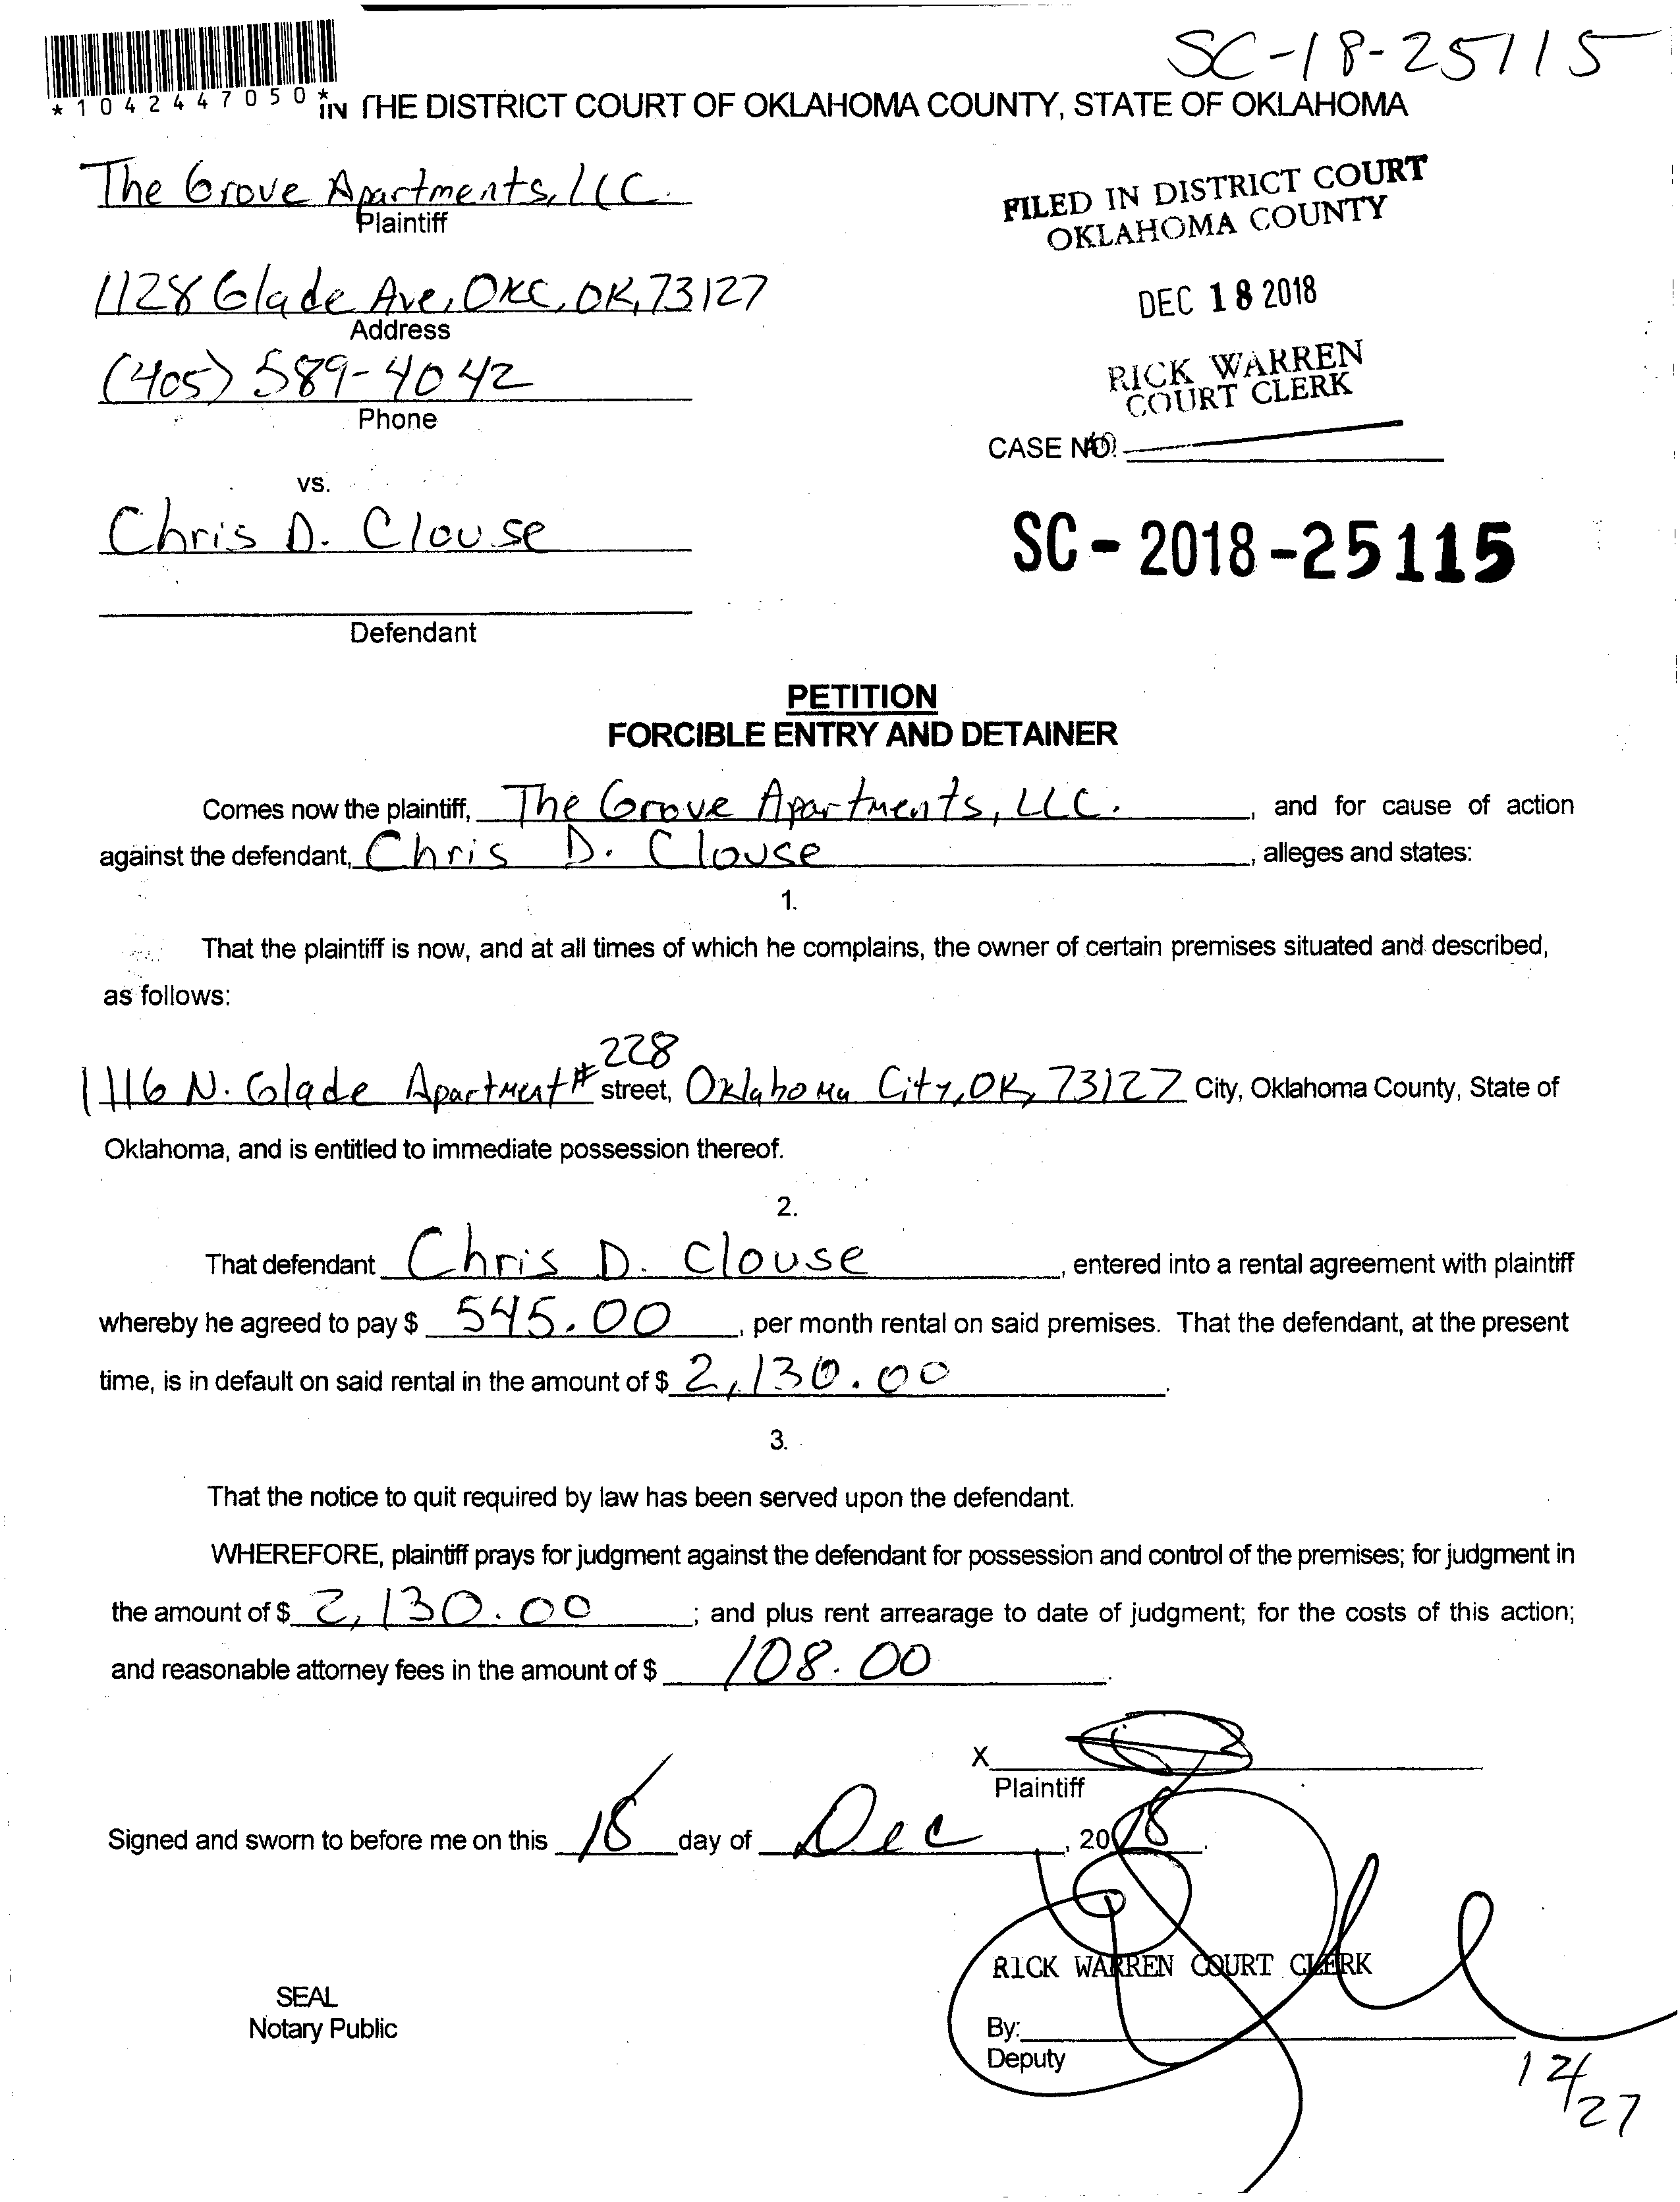 SC-18-25115
*1042447050*
IN THE DISTRICT COURT OF OKLAHOMA COUNTY, STATE OF OKLAHOMA
The Grove Apartments, LLC.
Plaintiff
FILED IN DISTRICT COURT
OKLAHOMA COUNTY
1128 Glade Ave, OKC, OK, 73127
Address
DEC 18 2018
(405) 589-4042
Phone
RICK WARREN
COURT CLERK
CASE NO.
vs.
Chris D. Clouse
SC-2018-25115
Defendant
PETITION
FORCIBLE ENTRY AND DETAINER
Comes now the plaintiff, The Grove Apartments, LLC. , and for cause of action
against the defendant, Chris D. Clouse , alleges and states:
1.
That the plaintiff is now, and at all times of which he complains, the owner of certain premises situated and described,
as follows:
228
1116 N. Glade Apartment# street, Oklahoma City, OK, 73127 City, Oklahoma County, State of
Oklahoma, and is entitled to immediate possession thereof.
2.
That defendant Chris D. Clouse , entered into a rental agreement with plaintiff
whereby he agreed to pay $ 545.00 , per month rental on said premises. That the defendant, at the present
time, is in default on said rental in the amount of $ 2,130.00 .
3.
That the notice to quit required by law has been served upon the defendant.
WHEREFORE, plaintiff prays for judgment against the defendant for possession and control of the premises; for judgment in
the amount of $ 2,130.00 ; and plus rent arrearage to date of judgment; for the costs of this action;
and reasonable attorney fees in the amount of $ 108.00 .
X
Plaintiff
Signed and sworn to before me on this 18 day of Dec , 2018.
RICK WARREN COURT CLERK
SEAL
Notary Public
By:
Deputy
12/27